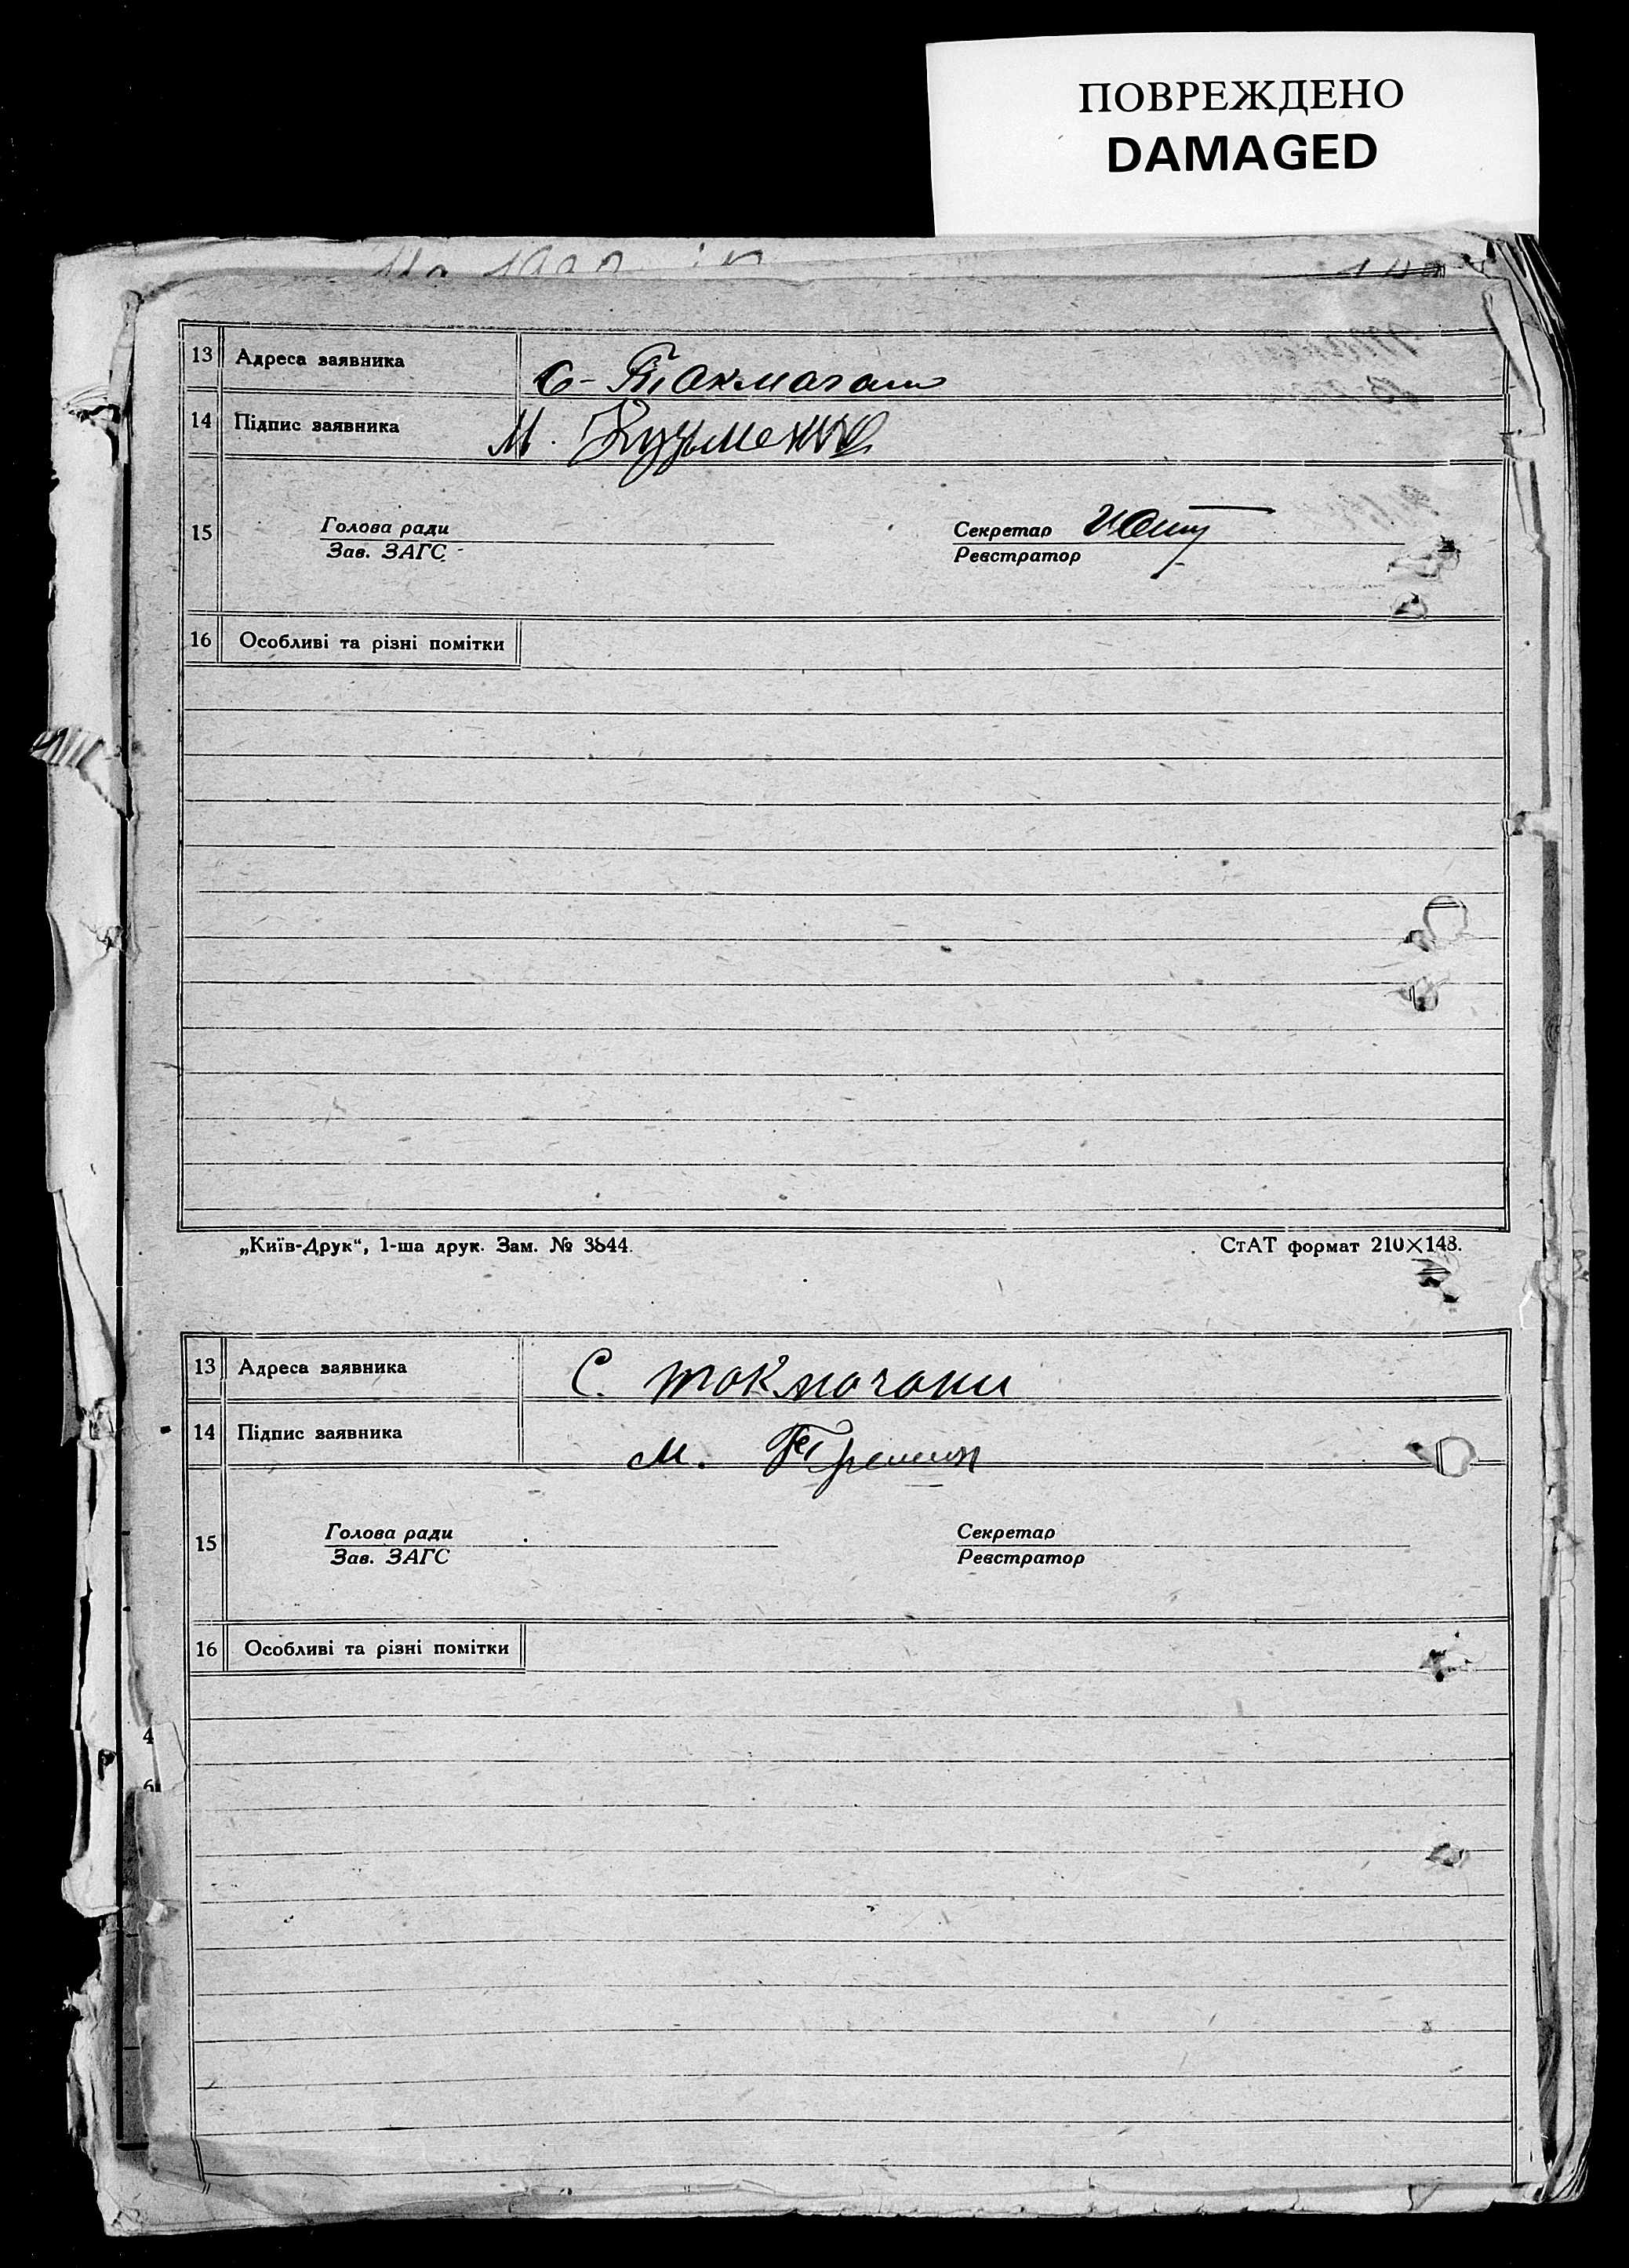 ПОВРЕЖДЕНО
DAMAGED
13 Адреса заявника
14 Підпис заявника М. Кузьменко
15 Голова ради Секретар
Зав. ЗАГС Реєстратор
16 Особливі та різні помітки
„Київ-Друк“, 1-ша друк. Зам. № 3844. СтАТ формат 210×148.
13 Адреса заявника С. токмачани
14 Підпис заявника М.
15 Голова ради Секретар
Зав. ЗАГС Реєстратор
16 Особливі та різні помітки
4
6